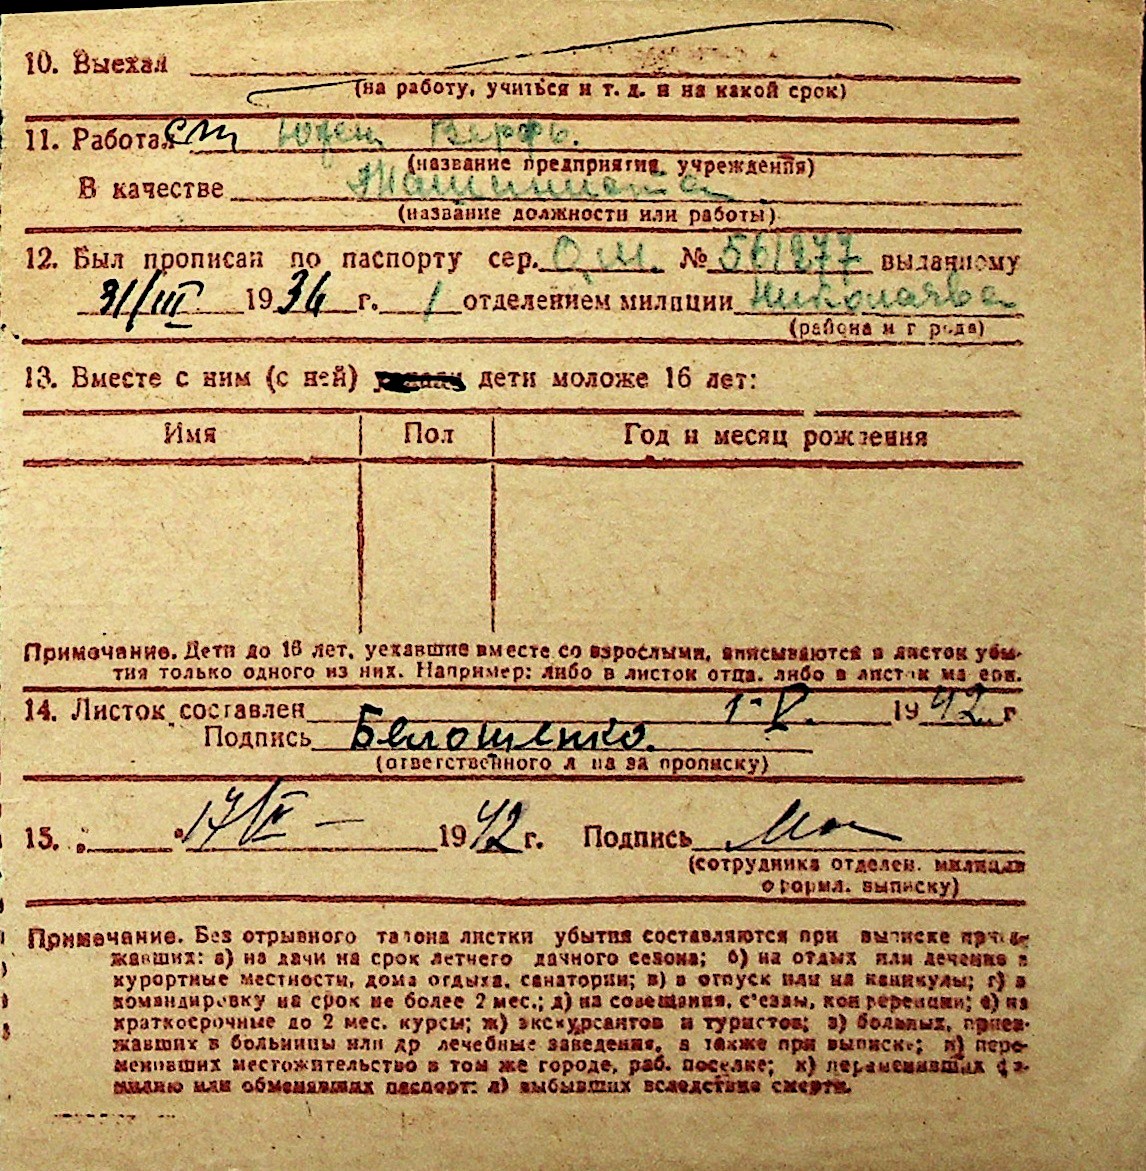 10. Выехал
(на работу, учиться и т. д. и на какой срок)
11. Работал Верфь.
(название предприятия, учреждения)
В качестве Машиниста
(название должности или работы)
12. Был прописан по паспорту сер. О.М. № 561277 выданному
31/III 1936 г. 1 отделением милиции Николаева
(района и города)
13. Вместе с ним (с ней) дети моложе 16 лет:
Имя Пол Год и месяц рождения
Примечание. Дети до 16 лет, уехавшие вместе со взрослыми, вписываются в листок убы-
тия только одного из них. Например: либо в листок отца, либо в листок матери.
14. Листок составлен 1-V. 1942 г
Подпись Белошенко.
(ответственного лица за прописку)
15. „ " 17/V — 1942 г. Подпись
(сотрудника отделен. милиции
оформл. выписку)
Примечание. Без отрывного талона листки убытия составляются при выписке приез-
жавших: а) на дачи на срок летнего дачного сезона; б) на отдых или лечение в
курортные местности, дома отдыха, санатории; в) в отпуск или на каникулы; г) в
командировку на срок не более 2 мес.; д) на совещания, с'езды, конференции; е) на
краткосрочные до 2 мес. курсы; ж) экскурсантов и туристов; з) больных, приез-
жавших в больницы или др лечебные заведения, а также при выписке; и) пере-
менивших местожительство в том же городе, раб. поселке; к) переменивших фа-
милию или обменявших паспорт; л) выбывших вследствие смерти.